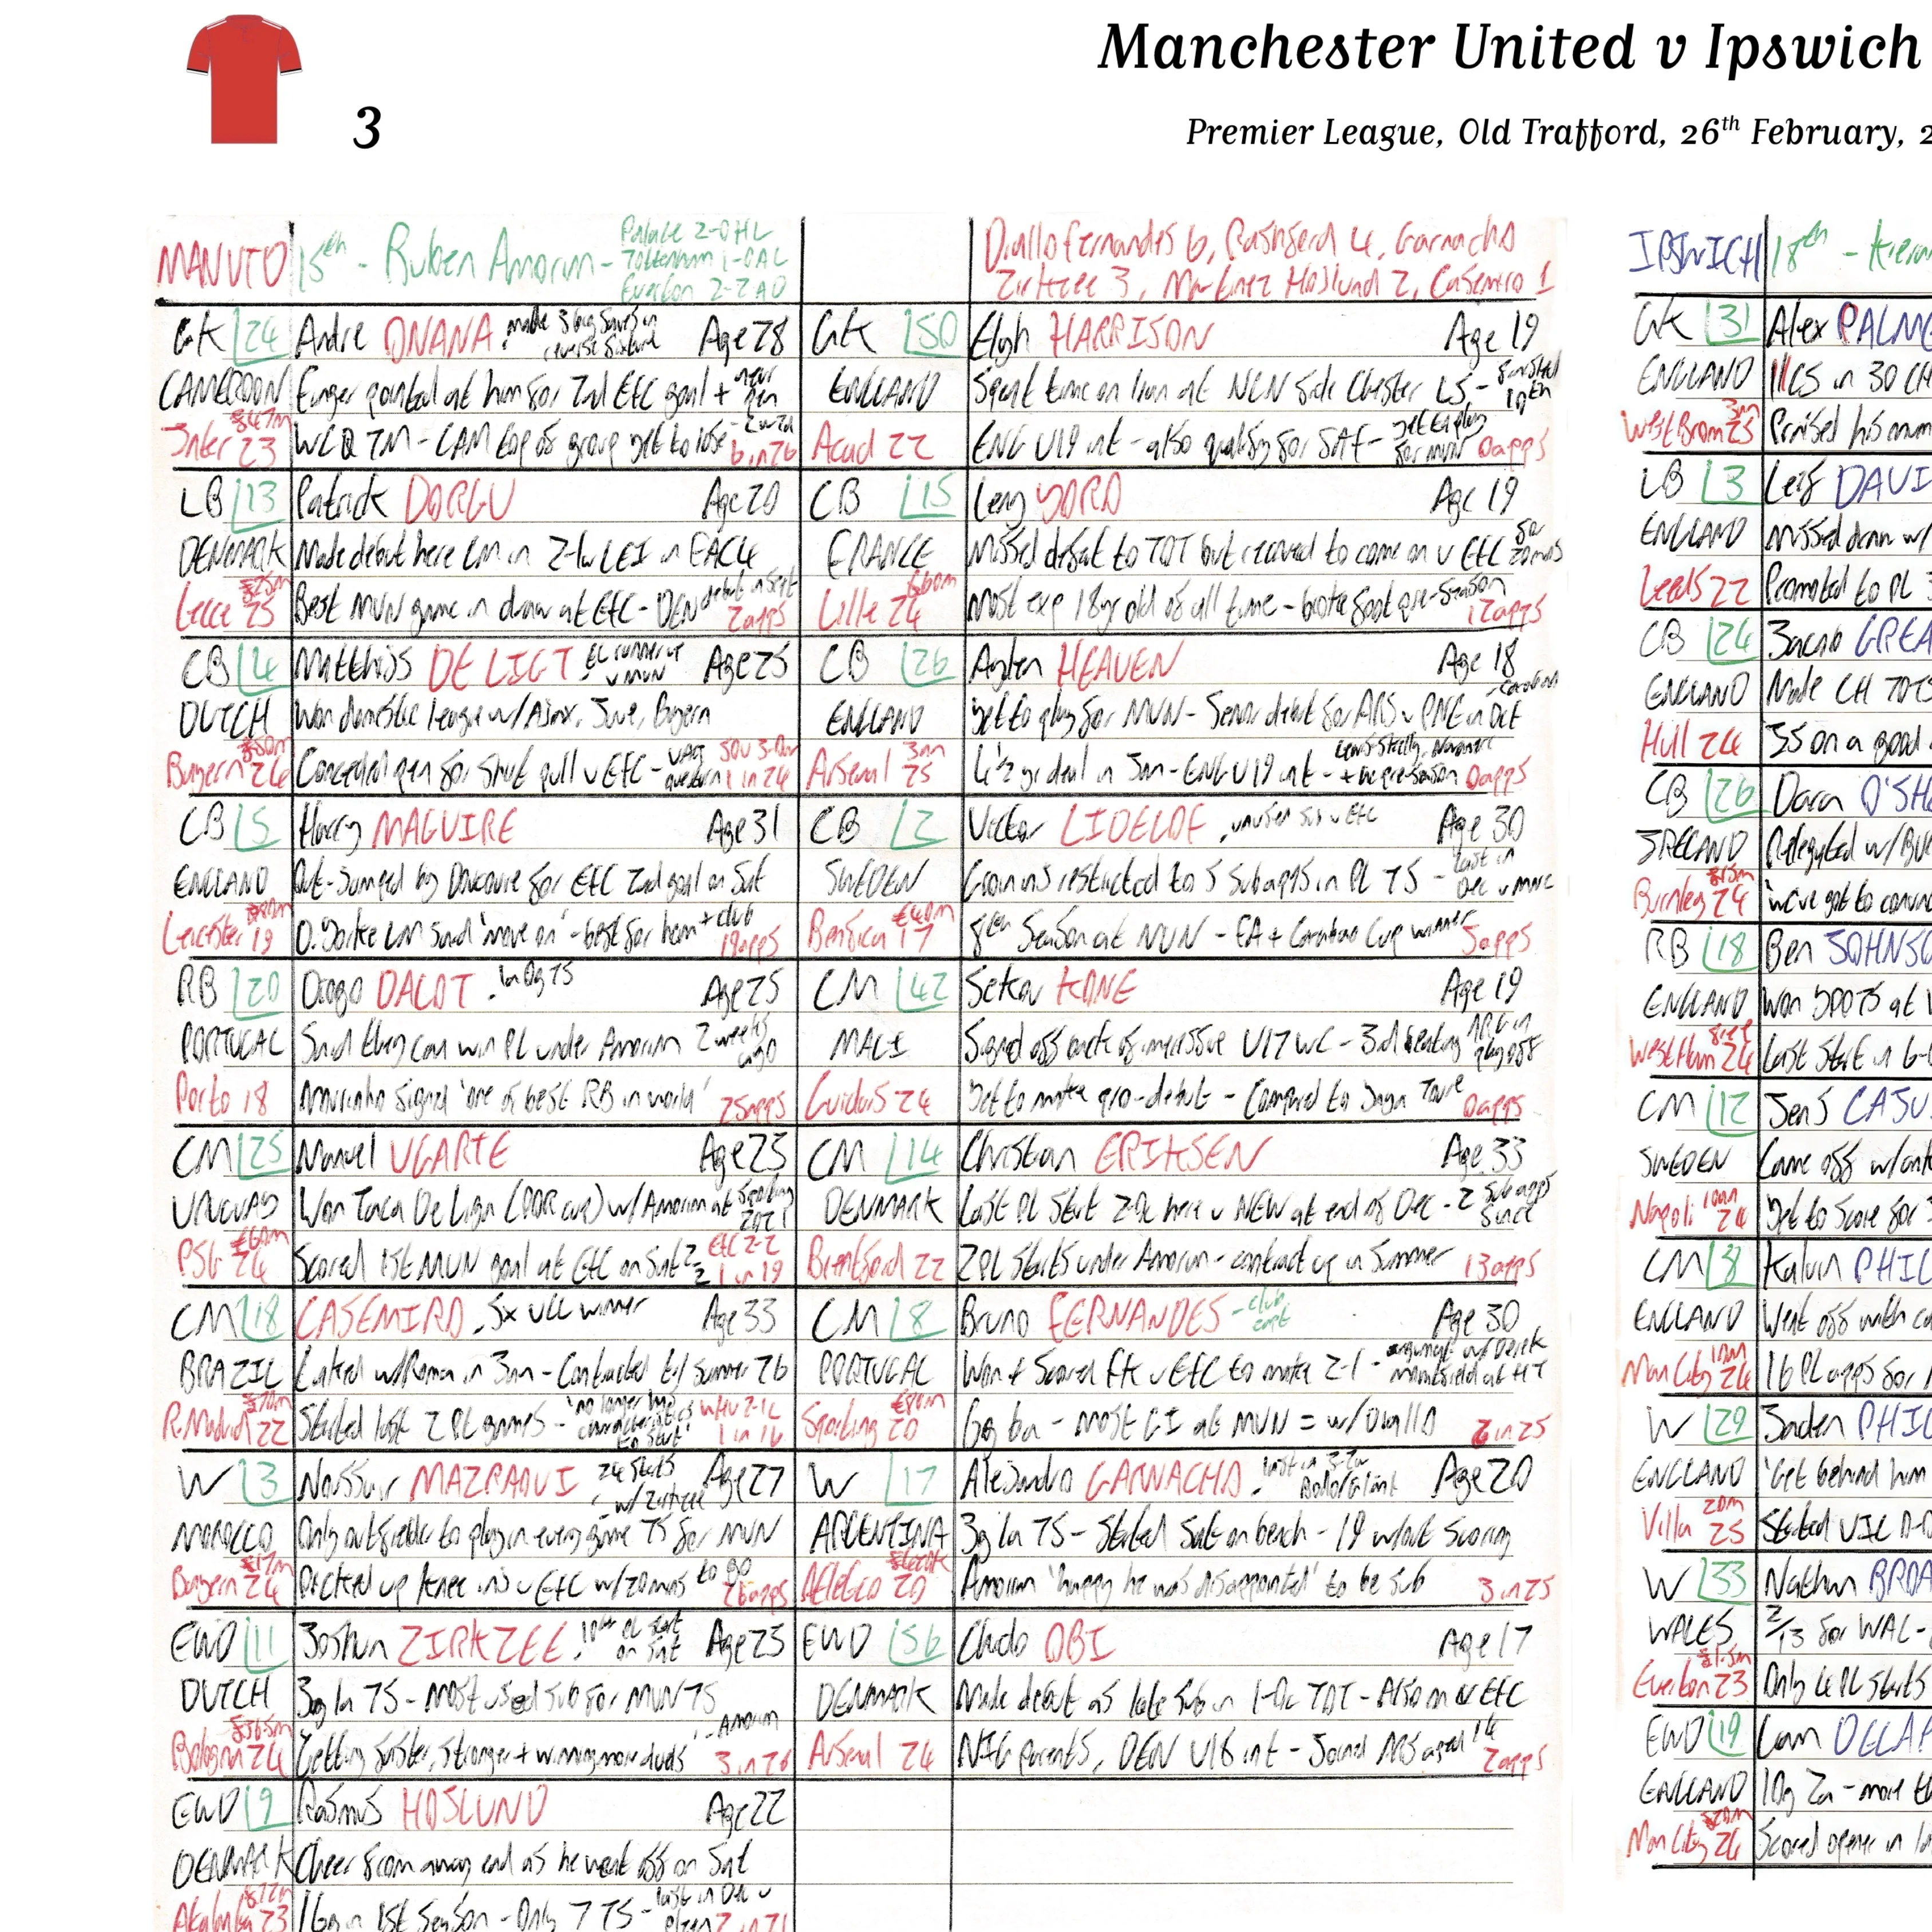 Manchester United v Ipswich
3
Premier League, Old Trafford, 26th February, 2
MAN UTD 15th - Ruben Amorim - Palace 2-0 HL
Tottenham 1-0 AL
Everton 2-2 AD
Diallo Fernandes 6, Rashford 4, Garnacho
Zirkzee 3, Martinez Hojlund 2, Casemiro 1
GK 24 Andre ONANA Age 28
CAMEROON Finger pointed at him for 2nd EFC goal +
£47m
Inter 23 WCQ TM - CAM top of group yet to lose 6 in 26
LB 13 Patrick DORGU Age 20
DENMARK Made debut here LM in 2-1w LEI in FAC4
£25m
Lecce 25 Best MUN game in draw at EFC - DEN debut in Sept 2apps
CB 4 Matthijs DE LIGT . EL runner up v MUN Age 25
DUTCH Won domestic league w/Ajax, Juve, Bayern
Bayern 24 Conceded pen for shirt pull v EFC - VAR overturn SOU 3-0 1 in 24
CB 5 Harry MAGUIRE Age 31
ENGLAND Out-jumped by Doucoure for EFC 2nd goal on Sat
£80m
Leicester 19 D.Yorke LM said 'move on' - best for him + club 19apps
RB 20 Diogo DALOT Age 25
PORTUGAL Said they can win PL under Amorim 2 weeks ago
Porto 18 Mourinho signed 'one of best RB in world' 25apps
CM 25 Manuel UGARTE Age 23
URUGUAY Won Taca De Liga (POR cup) w/Amorim at Sporting
£60m
PSG 24 Scored 1st MUN goal at EFC on Sat EFC 2-2 1 in 19
CM 18 CASEMIRO . 5x UCL winner Age 33
BRAZIL Linked w/Roma in Jan - Contracted til Summer 26
£70m
R.Madrid 22 Started last 2 PL games - 'no longer has characteristics to start' WHU 2-1L 1 in 16
W 3 Noussair MAZRAOUI 24 starts - w/Zirkzee Age 27
MOROCCO Only outfielder to play in every game TS for MUN
£17m
Bayern 24 Picked up knee inj v EFC w/20mins to go 26apps
FWD 11 Joshua ZIRKZEE . 10th PL start on Sat Age 23
DUTCH 3g 1a TS - Most used sub for MUN TS
£36.5m - Amorim
Bologna 24 'Getting faster, stronger + winning more duels' 3 in 26
FWD 9 Rasmus HOJLUND Age 22
DENMARK Cheer from away end as he went off on Sat
£72m
Atalanta 23 16g in 1st season - Only 7 TS - last in Dec v 2 in 21
GK 50 Elyh HARRISON Age 19
ENGLAND Spent time on loan at NLN side Chester LS -
Acad 22 ENG U19 int - also qualify for SAF - yet to play for MUN 0apps
CB 15 Leny YORO Age 19
FRANCE Missed defeat to TOT but recovered to come on v EFC
£60m
Lille 24 Most exp 18yr old of all time - broke foot pre-season 12apps
CB 26 Ayden HEAVEN Age 18
ENGLAND Yet to play for MUN - Senior debut for ARS v PNE in Oct - Carabao
Arsenal 25 4½ yr deal in Jan - ENG U19 int - 0apps
CB 2 Victor LIDELOF . unused sub v EFC Age 30
SWEDEN Groin inj restricted to 5 sub apps in PL TS - last in Dec v MNC
Benfica 17 8th season at MUN - FA + Carabao Cup winner 5apps
CM 42 Sekou KONE Age 19
MALI Signed off back of impressive U17 WC - 3rd beating ARG in play off
Guidars 24 Yet to make pro-debut - Compared to Yaya Toure 0apps
CM 14 Christian ERIKSEN Age 33
DENMARK Last PL start 2-0L here v NEW at end of Dec - 2 sub apps since
Brentford 22 2 PL starts under Amorim - contract up in Summer 13apps
CM 8 Bruno FERNANDES - club capt Age 30
PORTUGAL Won + Scored FK v EFC to make 2-1 -
£80m
Sporting 20 6g 6a - most GI at MUN = w/Diallo 6 in 25
W 17 Alejandro GARNACHO Age 20
ARGENTINA 3g 1a TS - Started Sat on bench - 19 without scoring
Atletico 20 Amorim 'happy he was disappointed' to be sub 3 in 25
FWD 56 Chido OBI Age 17
DENMARK Made debut as late sub in 1-0L TOT - Also on v EFC
Arsenal 24 NIG parents, DEN U18 int - Joined ARS aged 14 2apps
IPSWICH 18th - Kieran
GK 31 Alex PALM
ENGLAND 11CS in 30 CH
West Brom 25 Praised his mum
LB 3 Leif DAVI
ENGLAND Missed draw w/
Leeds 22 Promoted to PL
CB 24 Jacob GREA
ENGLAND Made CH TOTS
Hull 24
CB 26 Dara O'SHE
IRELAND Relegated w/BUR
£15m
Burnley 24 'We've got to convin
RB 18 Ben JOHNSO
ENGLAND Won YPOTS at W
free
West Ham 24 Last start in 6-
CM 12 Jens CAJU
SWEDEN Came off w/ankl
10m
Napoli 24 Yet to score for
CM 8 Kalvin PHIL
ENGLAND Went off with ca
Man City 24 16 PL apps for
W 29 Jaden PHIL
ENGLAND 'Get behind him
20m
Villa 25 Started VIL 0-0
W 33 Nathan BROA
WALES 2/13 for WAL -
£1.5m
Everton 23 Only 4 PL starts
FWD 19 Liam DELAP
ENGLAND 10g 2a - more th
£20m
Man City 24 Scored opener in